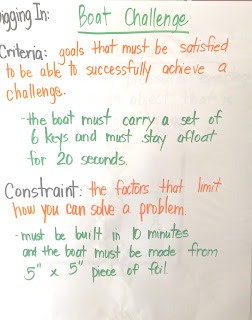 Digging In: Boat Challenge
Criteria: goals that must be satisfied
to be able to successfully achieve a
challenge.
-the boat must carry a set of
6 keys and must stay afloat
for 20 seconds.
Constraint: the factors that limit
how you can solve a problem.
-must be built in 10 minutes
and the boat must be made from
5" x 5" piece of foil.